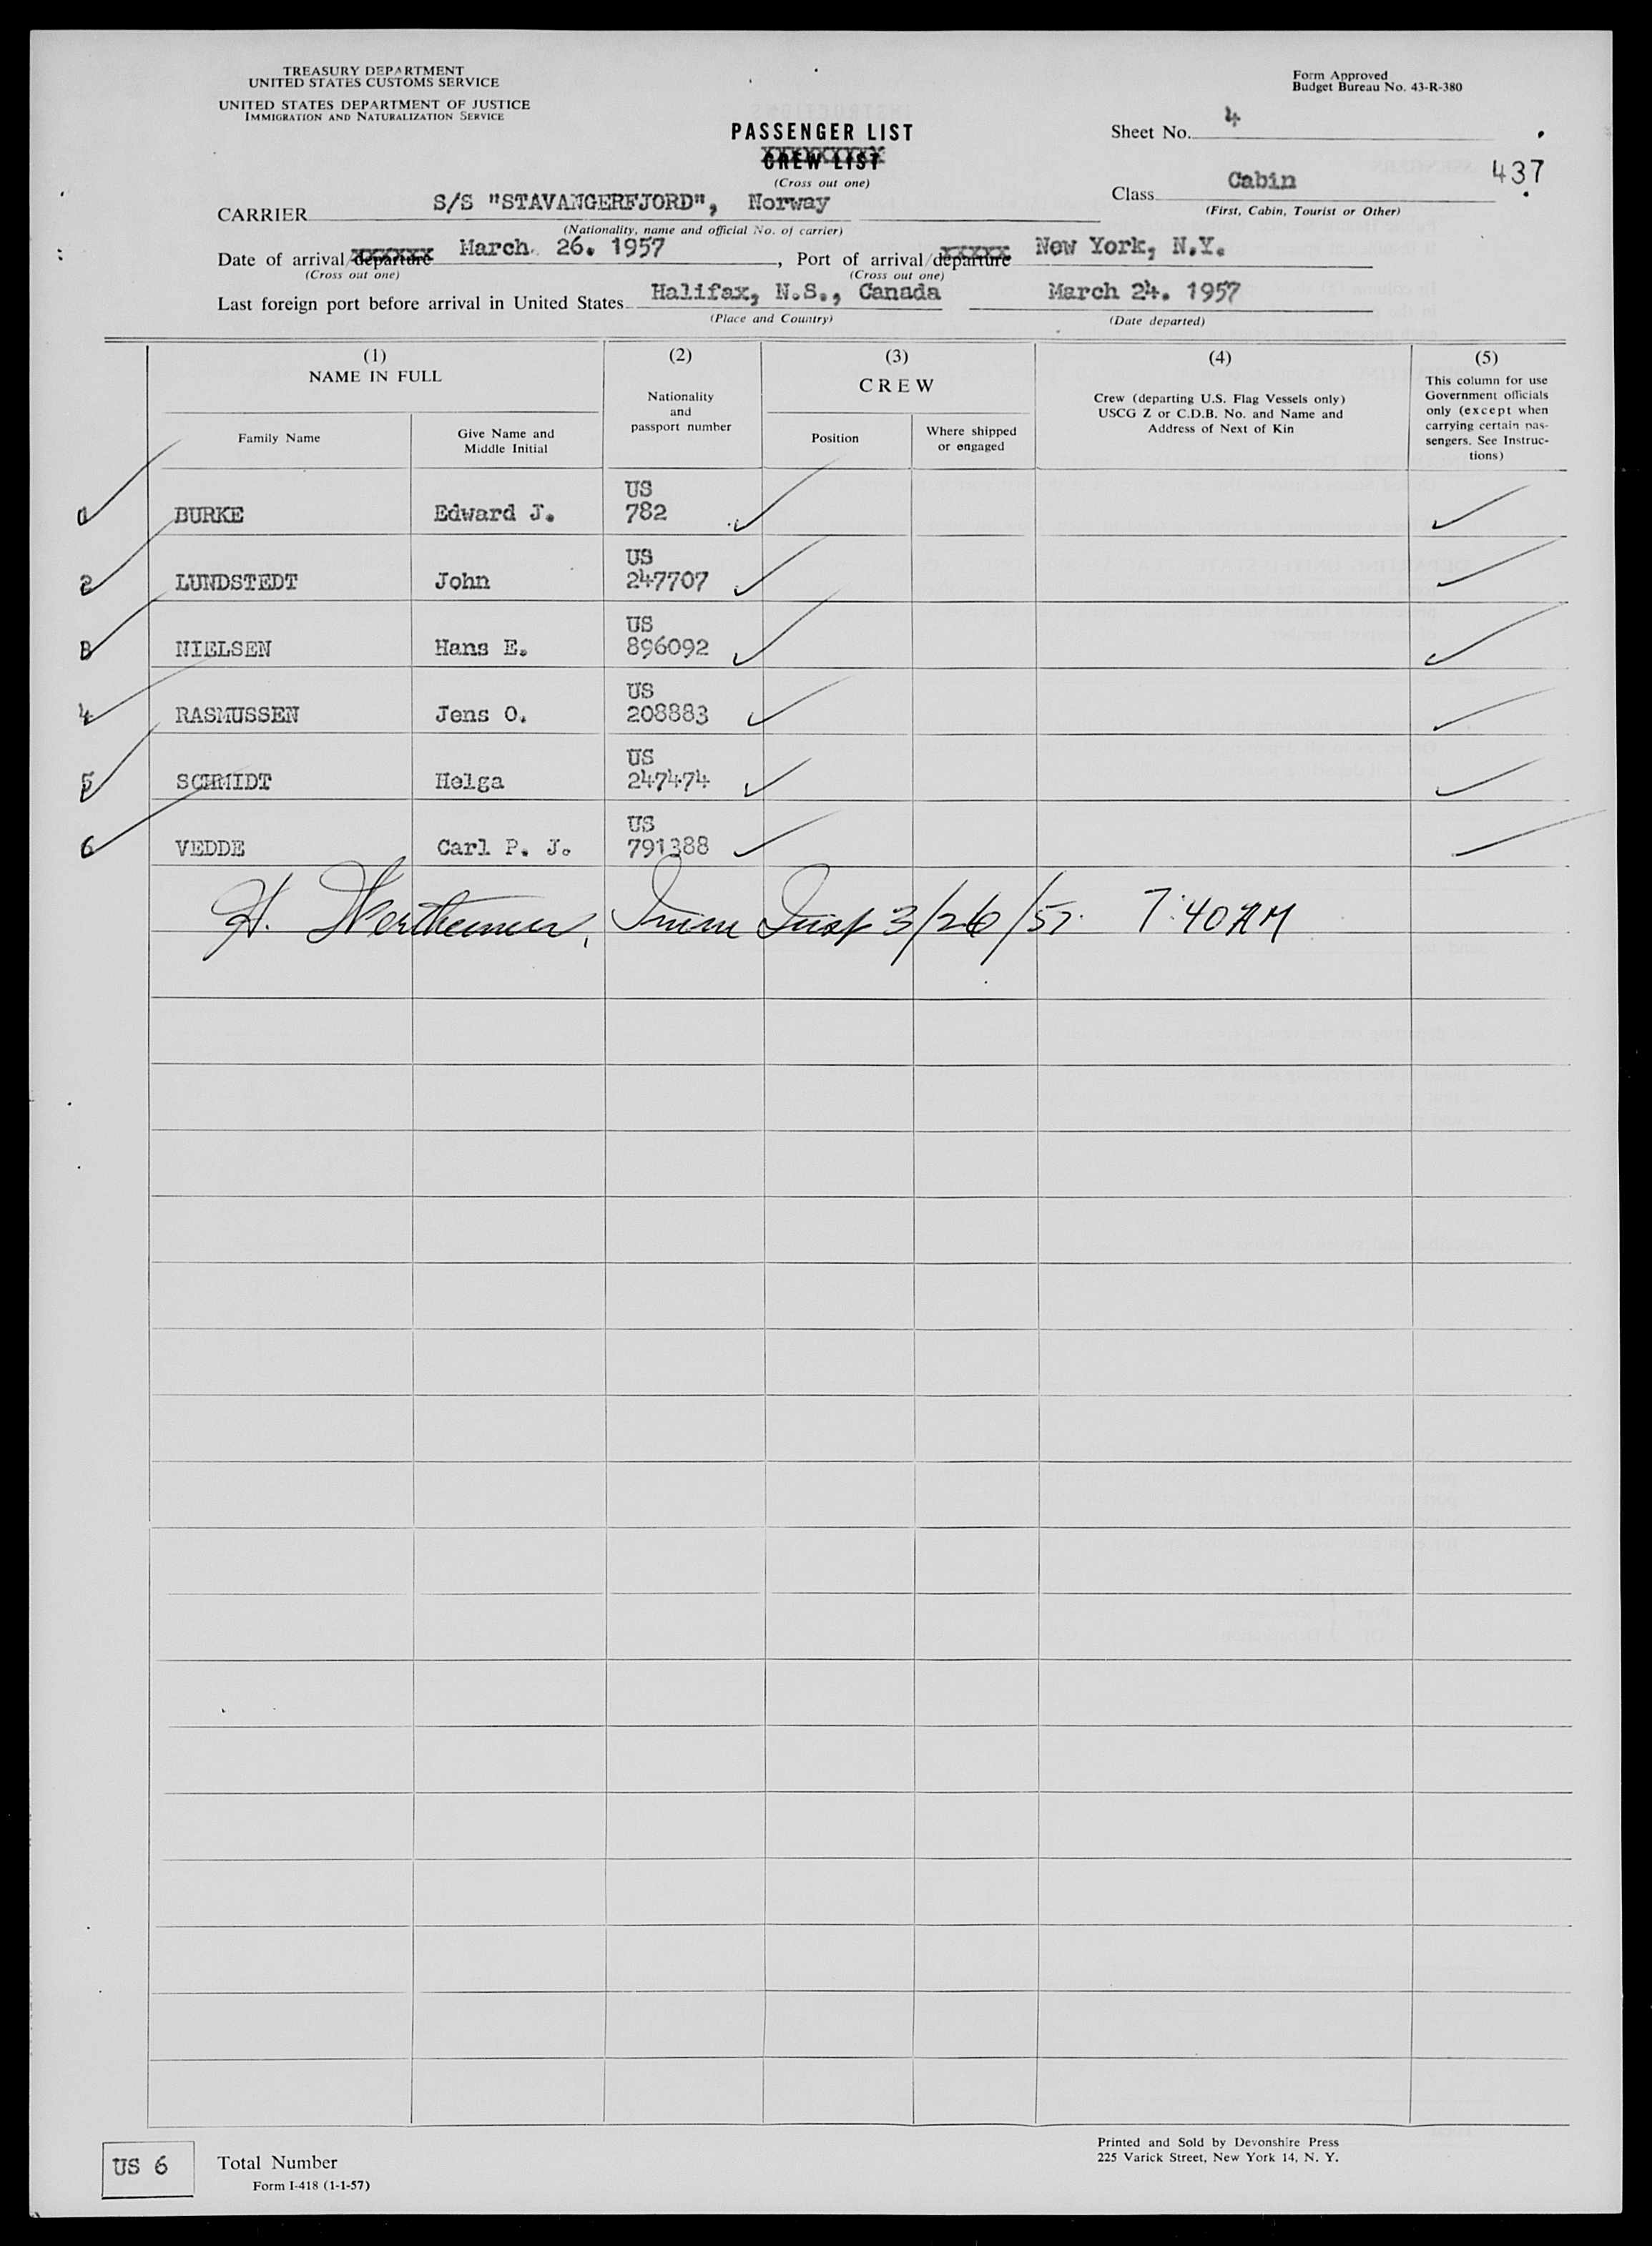 TREASURY DEPARTMENT
UNITED STATES CUSTOMS SERVICE
UNITED STATES DEPARTMENT OF JUSTICE
IMMIGRATION AND NATURALIZATION SERVICE
Form Approved
Budget Bureau No. 43-R-380
PASSENGER LIST
CREW LIST
(Cross out one)
Sheet No. 4
437
Class Cabin
(First, Cabin, Tourist or Other)
CARRIER S/S "STAVANGERFJORD", Norway
(Nationality, name and official No. of carrier)
Date of arrival/departure March 26. 1957, Port of arrival/departure New York, N.Y.
(Cross out one) (Cross out one)
Last foreign port before arrival in United States Halifax, N.S., Canada March 24. 1957
(Place and Country) (Date departed)
(1) (2) (3) (4) (5)
NAME IN FULL
Family Name
Give Name and
Middle Initial
Nationality
and
passport number
CREW
Position
Where shipped
or engaged
Crew (departing U.S. Flag Vessels only)
USCG Z or C.D.B. No. and Name and
Address of Next of Kin
This column for use
Government officials
only (except when
carrying certain pas-
sengers. See Instruc-
tions)
US
1 BURKE Edward J. 782
US
2 LUNDSTEDT John 247707
US
3 NIELSEN Hans E. 896092
US
4 RASMUSSEN Jens O. 208883
US
5 SCHMIDT Helga 247474
US
6 VEDDE Carl P. J. 791388
H. Wertheimer, Imm Insp 3/26/57. 7:40 AM
US 6 Total Number
Form I-418 (1-1-57)
Printed and Sold by Devonshire Press
225 Varick Street, New York 14, N. Y.